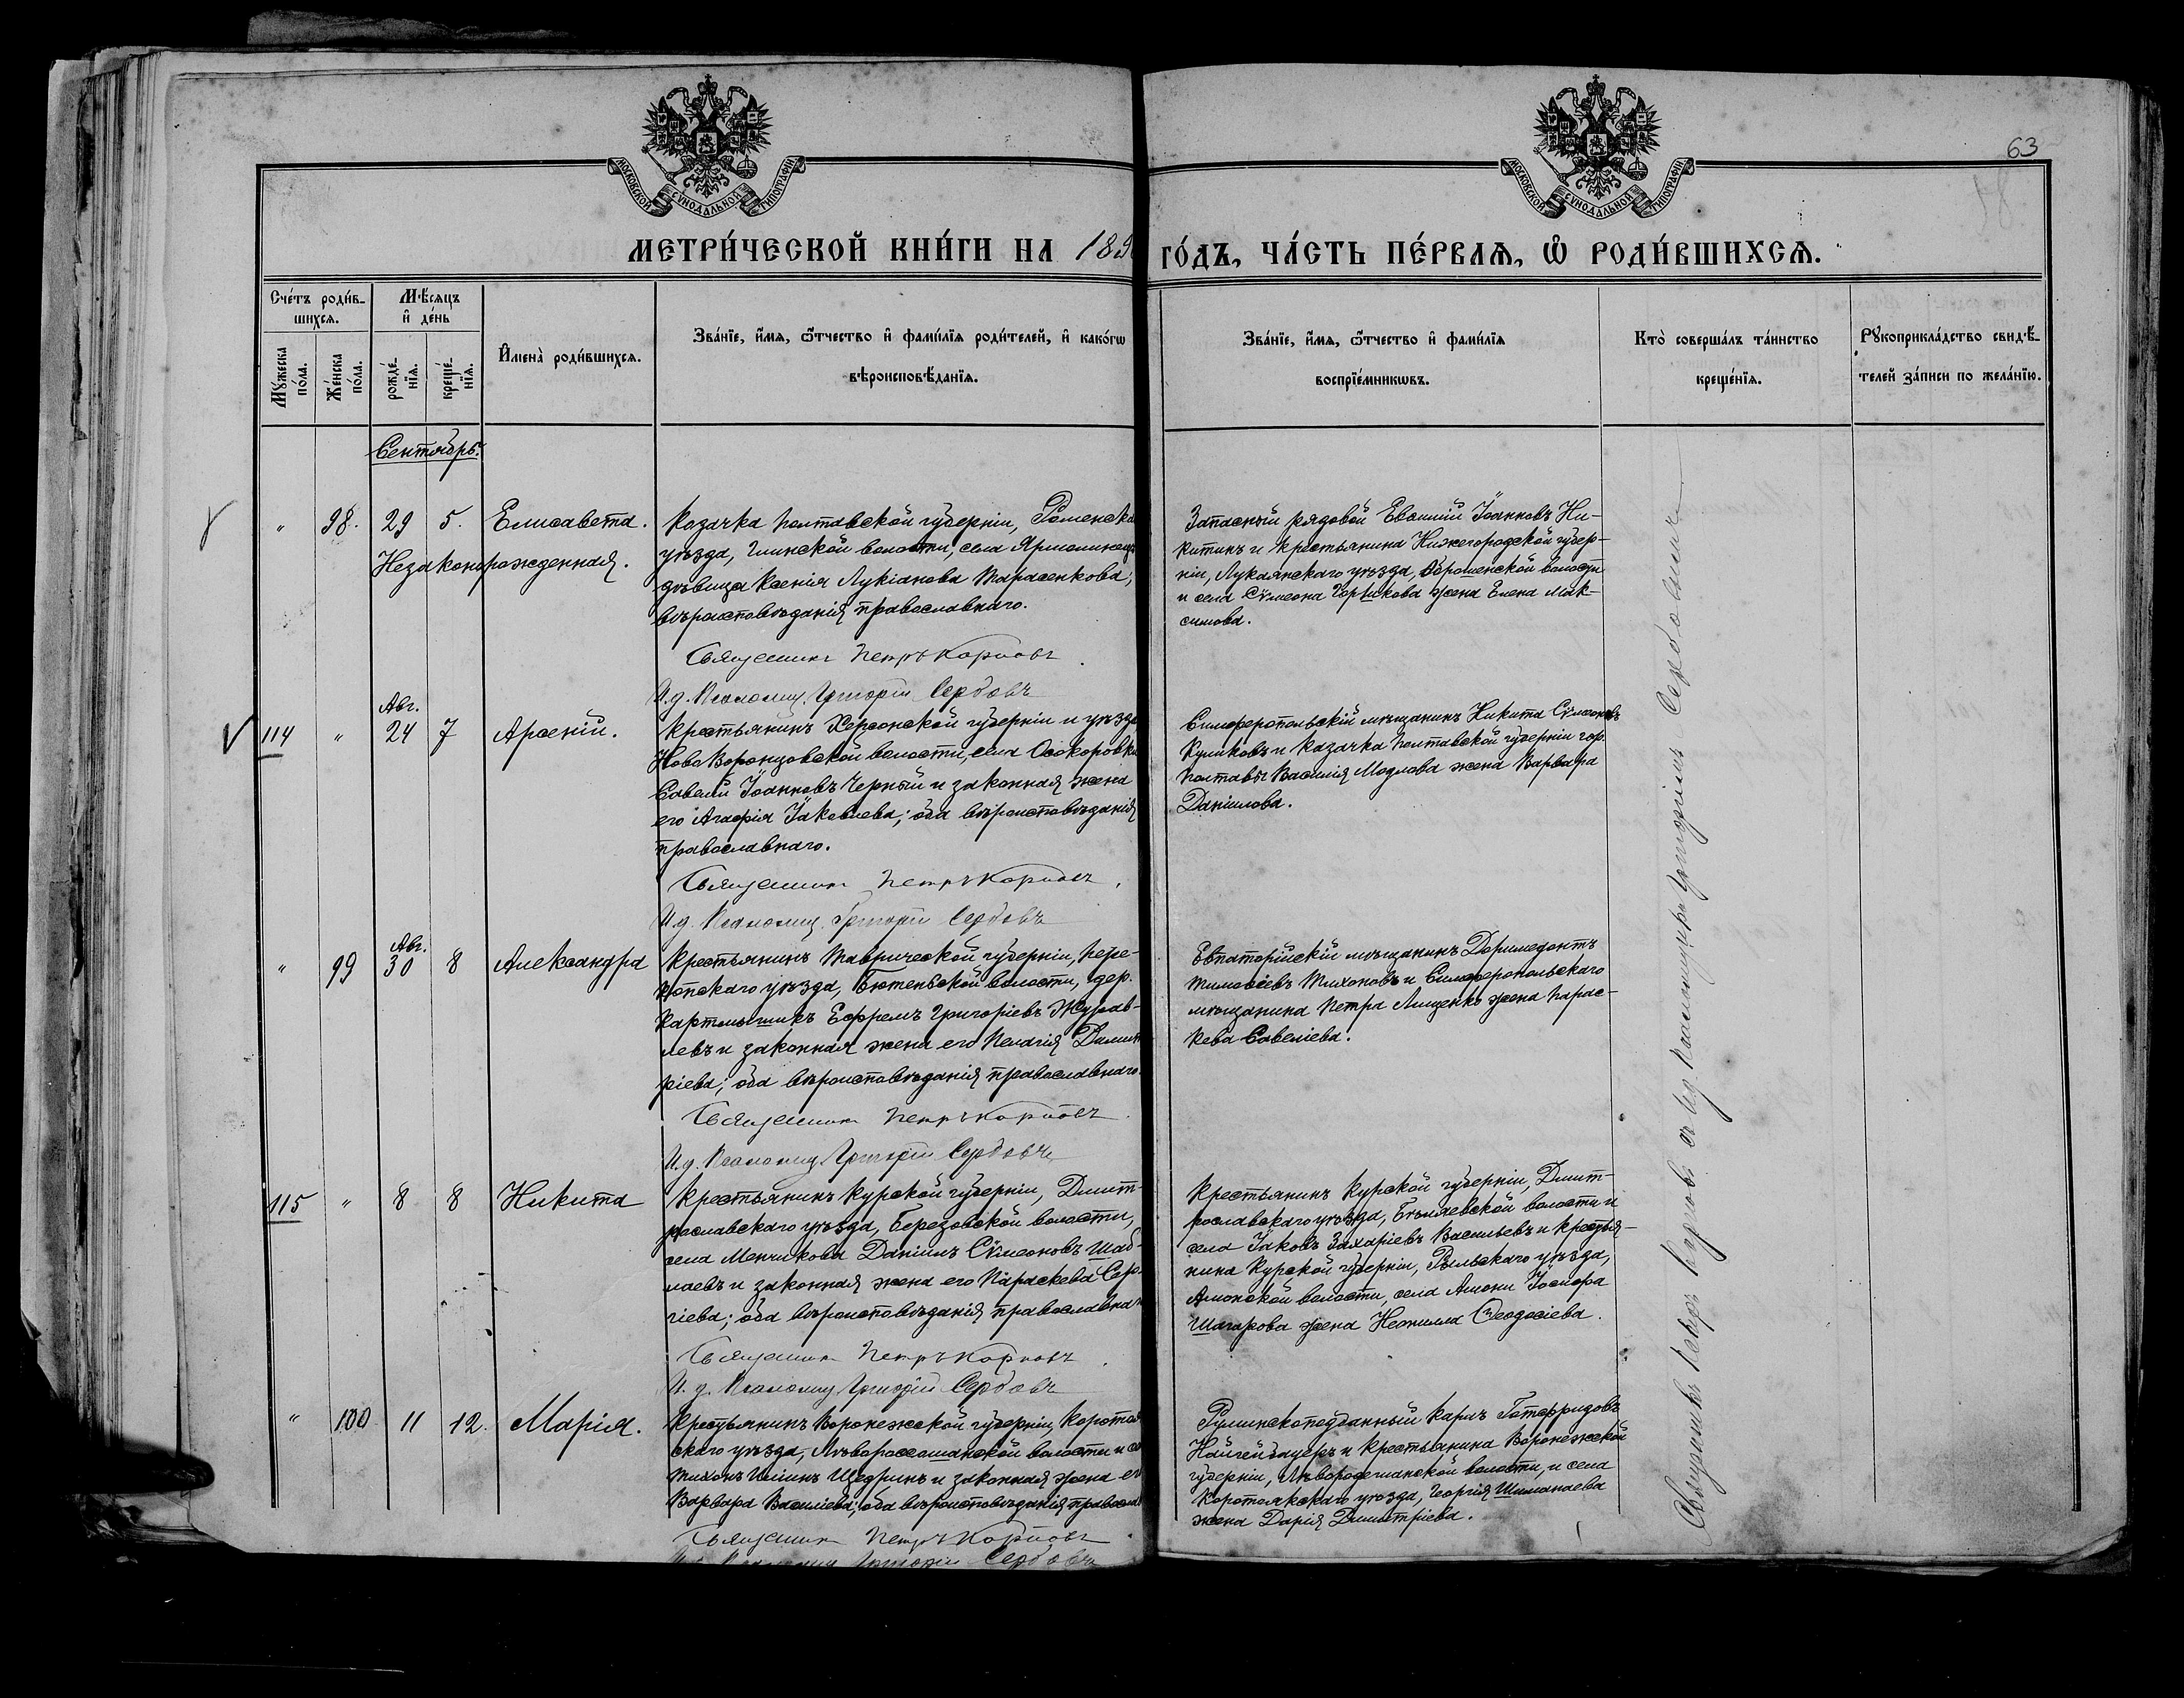 МОСКОВСКОЙ СѴНОДАЛЬНОЙ ТИПОГРАФІИ
МОСКОВСКОЙ СѴНОДАЛЬНОЙ ТИПОГРАФІИ
63
МЕТРИ́ЧЕСКОЙ КНИ́ГИ НА 189
ГО́ДЪ, ЧА́СТЬ ПЕ́РВАѦ, Ѡ҆ РОДИ́ВШИХСѦ.
Сче́тъ роди́в-
шихсѧ.
Мѣ́сѧцъ
и҆ де́нь
Мꙋ́жеска
по́ла.
Же́нска
по́ла.
рожде́-
нїѧ.
креще́-
нїѧ.
И҆мена̀ роди́вшихсѧ.
Зва́нїе, и҆́мѧ, ѻ҆́тчество и҆ фами́лїѧ роди́телей, и҆ како́гѡ
вѣроисповѣ́данїѧ.
Зва́нїе, и҆́мѧ, ѻ҆́тчество и҆ фами́лїѧ
воспрїе́мникѡвъ.
Кто̀ соверша́лъ та́инство
креще́нїѧ.
Рꙋкоприкла́дство свидѣ́-
телей за́писи по жела́нїю.
Сентябрь.
" 98. 29 5. Елисавета.
Незаконорожденная.
Козачка Полтавской губерніи, Роменска
уѣзда, Глинской волости, села Ярмолинец
дѣвица Ксенія Лукіанова Тарасенкова,
вѣроисповѣданія православнаго.
Священникъ Петръ Карповъ
И. д. Псаломщ. Григорій Сербовъ
Запасный рядовой Евфимій Іоанновъ Ни-
китинъ и крестьянина Нижегородской губер-
ніи, Лукоянскаго уѣзда, волости
и села Сѵмеона Горшкова жена Елена Мак-
симова.
114 " Авг. 24 7 Арсеній.
Крестьянинъ Херсонской губерніи и уѣзда
Ново Воронцовской волости, села Осокоровки
Савелій Іоанновъ Черный и законная жена
его Агафія Іаковлева; оба вѣроисповѣданія
православнаго.
Священникъ Петръ Карповъ
И. д. Псаломщ. Григорій Сербовъ
Симферопольскій мѣщанинъ Никита Сѵмеоновъ
Куликовъ и казачка Полтавской губерніи гор.
Полтавы Василія Модлова жена Варвара
Даніилова.
" 99 Авг. 30 8 Александра
Крестьянинъ Таврической губерніи, Пере-
копскаго уѣзда, Бютеньской волости, дер.
Картмышикъ Ефремъ Григоріевъ Журав-
левъ и законная жена его Пелагія Димит
ріева; оба вѣроисповѣданія православнаго.
Священникъ Петръ Карповъ
И. д. Псаломщ. Григорій Сербовъ
Евпаторійскій мѣщанинъ Доримедонтъ
Тимофеевъ Тихоновъ и Симферопольскаго
мѣщанина Петра Лищенко жена Парас-
кева Савеліева.
115 " 8 8 Никита
Крестьянинъ Курской губерніи, Дмит-
рославскаго уѣзда, Березовской волости,
села Меньшикова Даніилъ Сѵмеоновъ Шаб-
лаевъ и законная жена его Параскева Сер-
гіева; оба вѣроисповѣданія православна
Священникъ Петръ Карповъ
И. д. Псаломщ Григорій Сербовъ
Крестьянинъ Курской губерніи, Дмит-
рославскаго уѣзда, волости и
села Іаковъ Захаріевъ Васильевъ и крестья-
нина Курской губерніи, Рыльскаго уѣзда,
Амонской волости, села Амони Іосифа
Шагарова жена Неонилла Ѳеодосіева.
" 100 11 12. Марія.
Крестьянинъ Воронежской губерніи, Коротоя
скаго уѣзда, Лѣворосошанской волости и се
Тихонъ Иліинъ Щедринъ и законная жена ег
Варвара Василіева; оба вѣроисповѣданія правосл
Священникъ Петръ Карповъ
Григорій Сербовъ
Румынскоподданный Карлъ Готфридовъ
и крестьянина Воронежской
губерніи, волости, и села
Коротоякскаго уѣзда, Георгія Шиманаева
жена Дарія Димитріева.
Священникъ Петръ Карповъ съ и. д. Псаломщика Григоріемъ Сербовымъ